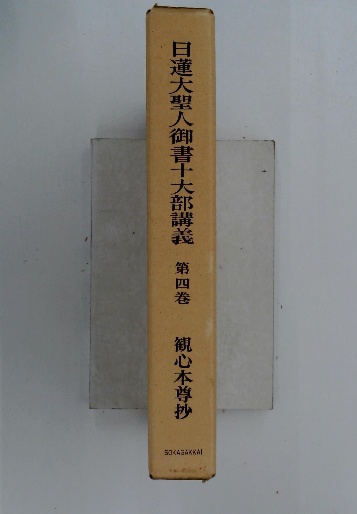 日蓮大聖人御書十大部講義
第四巻
観心本尊抄
SOKAGAKKAI